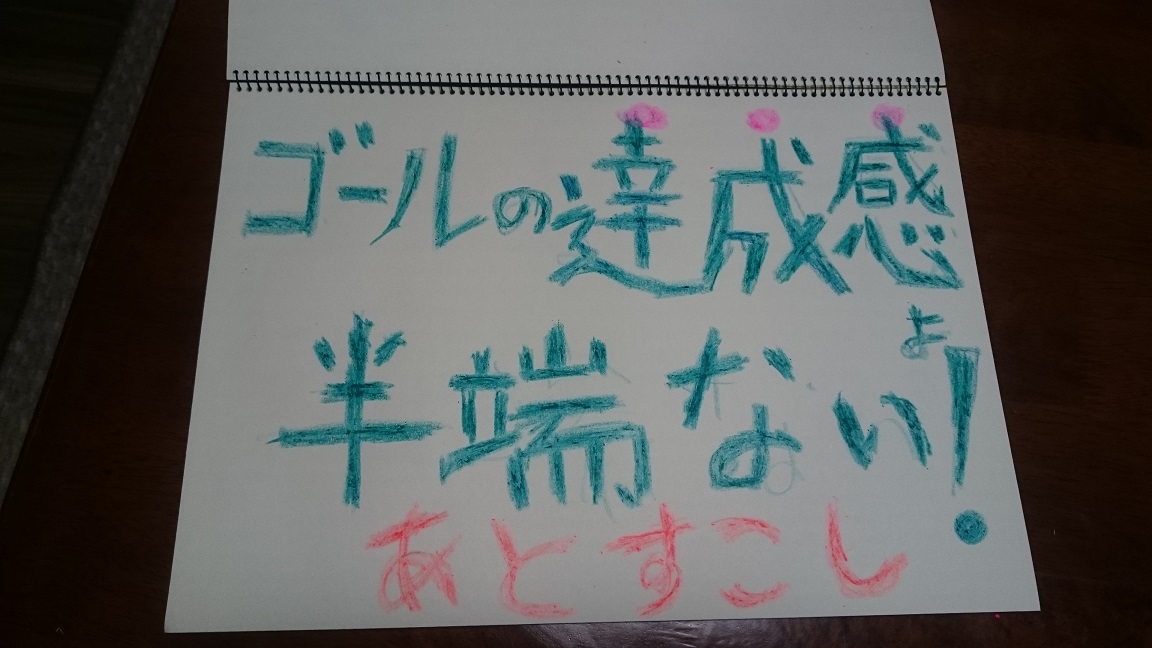 ゴールの達成感
半端ないよ!
あとすこし